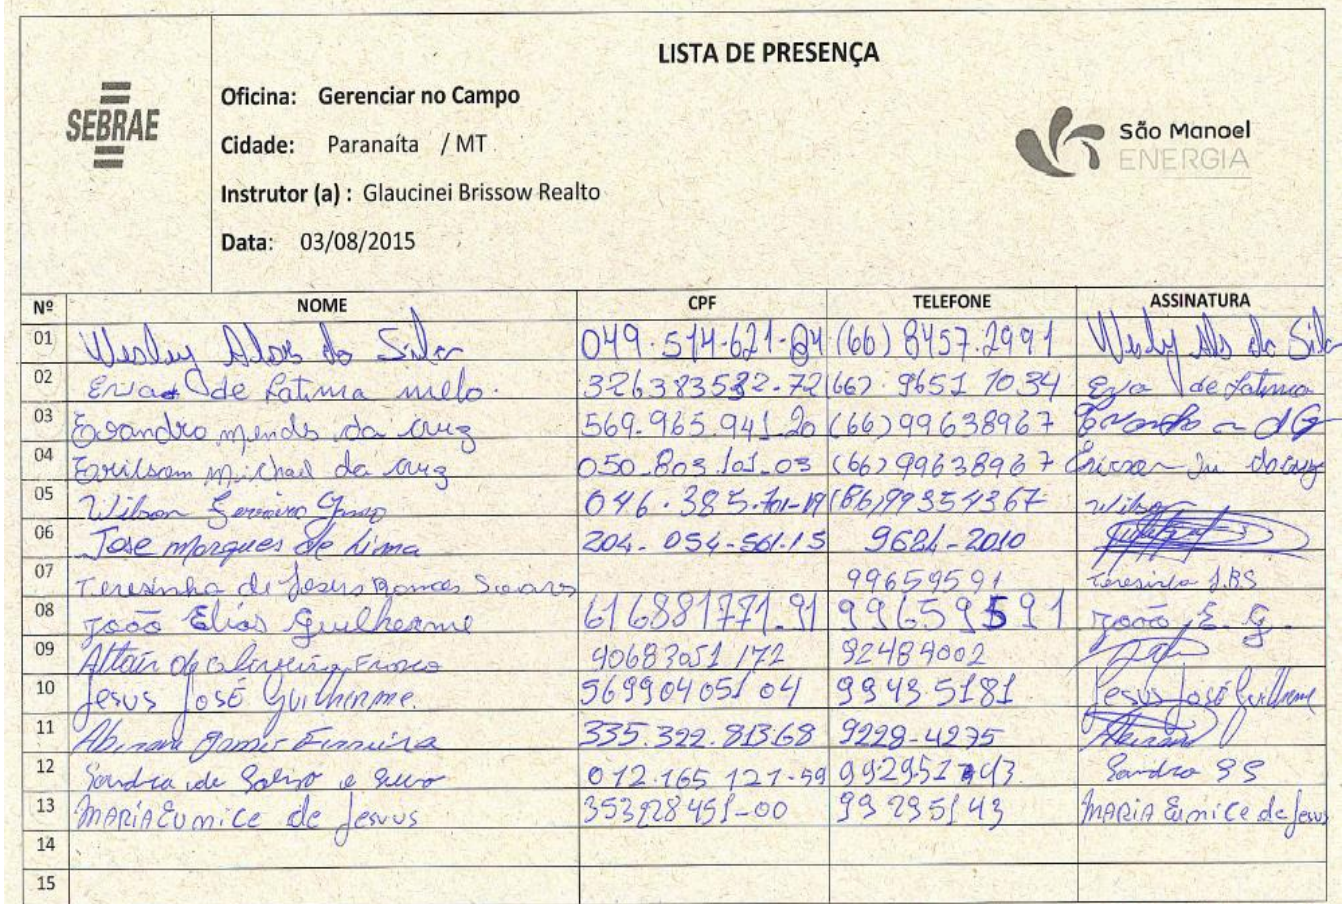 LISTA DE PRESENÇA
SEBRAE
Oficina: Gerenciar no Campo
Cidade: Paranaíta / MT
Instrutor (a) : Glaucinei Brissow Realto
Data: 03/08/2015
São Manoel
ENERGIA
Nº NOME CPF TELEFONE ASSINATURA
01 Wesley Alves da Silva 049.514-621-84 (66) 8457.2991 Wesley Als da Silva
02 Eva de Fatima melo. 326383532-72 (66) 9651 1034 Eva de Fatima
03 Evandro mendes da cruz 569.965.941_20 (66) 99638967
04 Erilsom michael da cruz 050.803.101_03 (66) 99638967
05 Wilson Ferreira 046.385.701-19 (66) 99354367 Wilson
06 Jose Marques de Lima 204.054-561.15 9621-2010
07 Teresinha de Jesus Soares 99659591 Teresinha J.B.S
08 João Elias Guilherme 616881771.91 99659591 João E. G.
09 Altair de oliveira 40683051 172 92484002
10 Jesus José Guilherme. 569904051 04 99435181 Jesus José Guilherme
11 Ferreira 335.322.813.68 9228-4275
12 Sandra de 012.165 121-59 Sandra SS
13 MARIA Eunice de Jesus 353928451-00 99295143 MARIA Eunice de Jesus
14
15